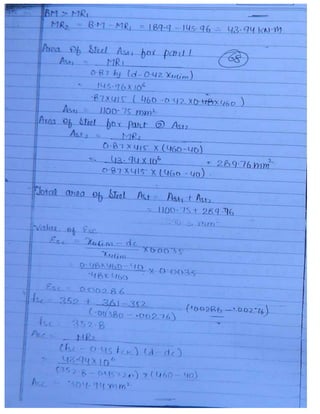 BM > MR₁
MR₂ = B·M - MR₁ = 189.9 - 145.96 = 43.94 KN·m
Area of Steel Ast₁ for part 1
68
Ast₁ = MR₁
0.87 fy (d - 0.42 xulim)
= 145.96 × 10⁶
.87 × 415 (460 - 0.42 × 0.48 × 460)
Ast₁ = 1100.75 mm²
Area of Steel for part ② Ast₂
Ast₂ = MR₂
0.87 × 415 × (460-40)
= 43.94 × 10⁶ = 289.76 mm²
0.87 × 415 × (460-40)
Total area of Steel Ast = Ast₁ + Ast₂
= 1100.75 + 289.76
value of Esc
Esc = xulim - dc × 0.0035
xulim
= 0.48×460-40 × 0.0035
.48×460
Esc = 0.00286
fsc = 352 + 361-352 (.00286 - .00276)
(.00380 - .00276)
fsc = 352.8
Asc = MR₂
(fsc - 0.45 fck) (d - dc)
= 43.94 × 10⁶
(352.8 - 0.45×20) × (460-40)
Asc = 304.74 mm²